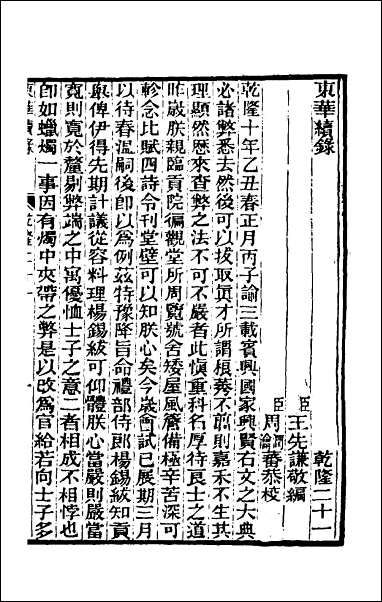 東華續錄　乾隆二十一
臣王先謙敬編
臣周潤蕃恭校
乾隆十年乙丑春正月丙子諭三載賓興國家興賢右文之大典
必諸弊悉去然後可以拔取眞才所謂稂莠不翦則嘉禾不生其
理顯然歷來查弊之法不可不嚴者此愼重科名厚待良士之道
昨歲朕親臨貢院徧觀堂所周覽號舍矮屋風簷備極辛苦深可
軫念比賦四詩令刊堂壁可以知朕心矣今歲會試已展期三月
以待春溫嗣後卽以爲例茲特豫降旨命禮部侍郎楊錫紱知貢
舉俾伊得先期計議從容料理楊錫紱可仰體朕心當嚴則嚴當
寬則寬於釐剔弊端之中寓優恤士子之意二者相成不相悖也
卽如蠟燭一事因有燭中夾帶之弊是以改爲官給若向士子多
東華續錄